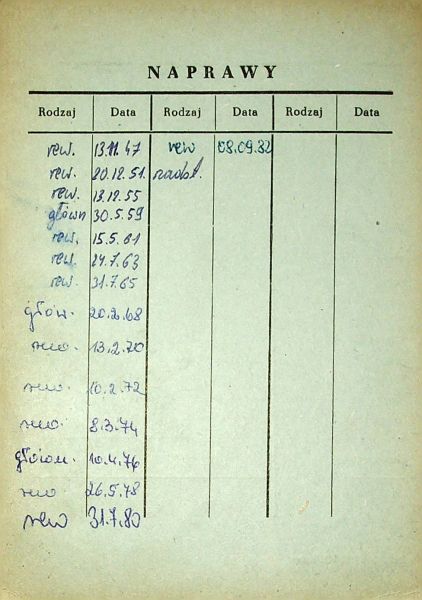 NAPRAWY
Rodzaj Data Rodzaj Data Rodzaj Data
rew. 13.11.47 rew 08.09.82
rew. 20.12.51. nadzl.
rew. 13.12.55
główn 30.5.59
rew. 15.5.61
rew. 24.7.63
rew. 31.7.65
głów. 20.2.68
rew. 13.2.70
rew. 10.2.72
rew. 8.3.74
główn. 10.4.76
rew 26.5.78
rew 31.7.80